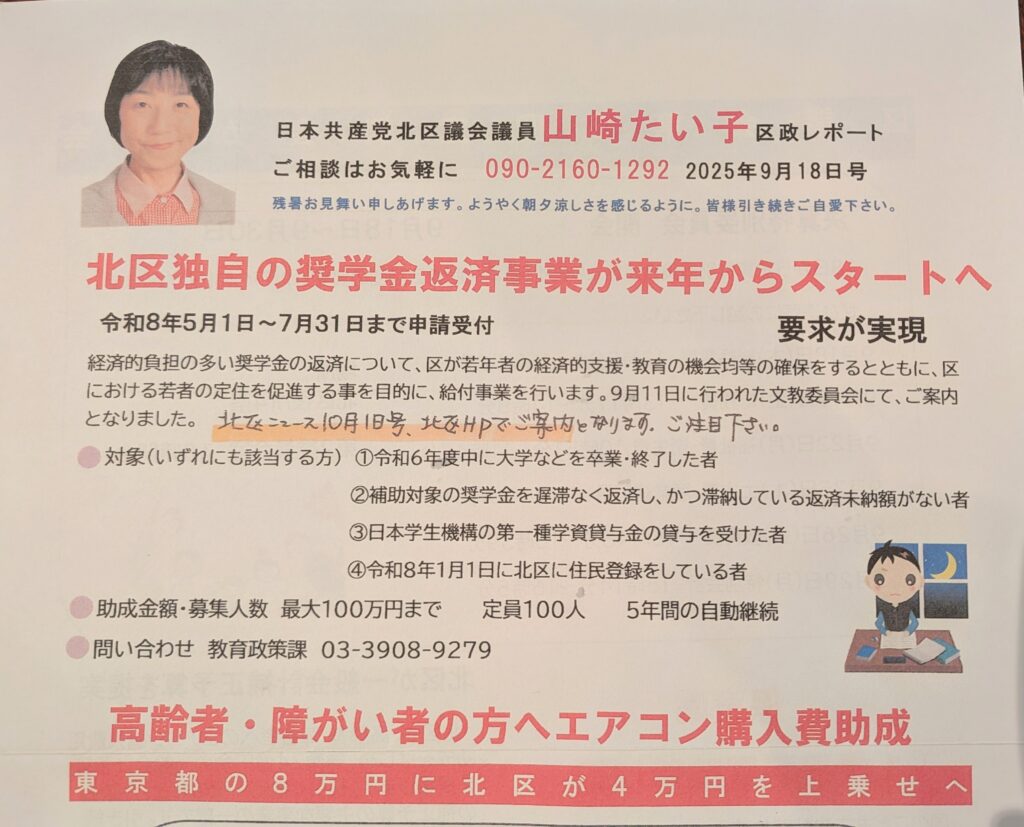 日本共産党北区議会議員 山崎たい子 区政レポート
ご相談はお気軽に 090-2160-1292 2025年9月18日号
残暑お見舞い申しあげます。ようやく朝夕涼しさを感じるように。皆様引き続きご自愛下さい。
北区独自の奨学金返済事業が来年からスタートへ
令和8年5月1日～7月31日まで申請受付 要求が実現
経済的負担の多い奨学金の返済について、区が若年者の経済的支援・教育の機会均等の確保をするとともに、区
における若者の定住を促進する事を目的に、給付事業を行います。9月11日に行われた文教委員会にて、ご案内
となりました。 北区ニュース10月1日号、北区HPでご案内となります。ご注目下さい。
対象（いずれにも該当する方） ①令和6年度中に大学などを卒業・終了した者
②補助対象の奨学金を遅滞なく返済し、かつ滞納している返済未納額がない者
③日本学生機構の第一種学資貸与金の貸与を受けた者
④令和8年1月1日に北区に住民登録をしている者
助成金額・募集人数 最大100万円まで 定員100人 5年間の自動継続
問い合わせ 教育政策課 03-3908-9279
高齢者・障がい者の方へエアコン購入費助成
東京都の8万円に北区が4万円を上乗せへ